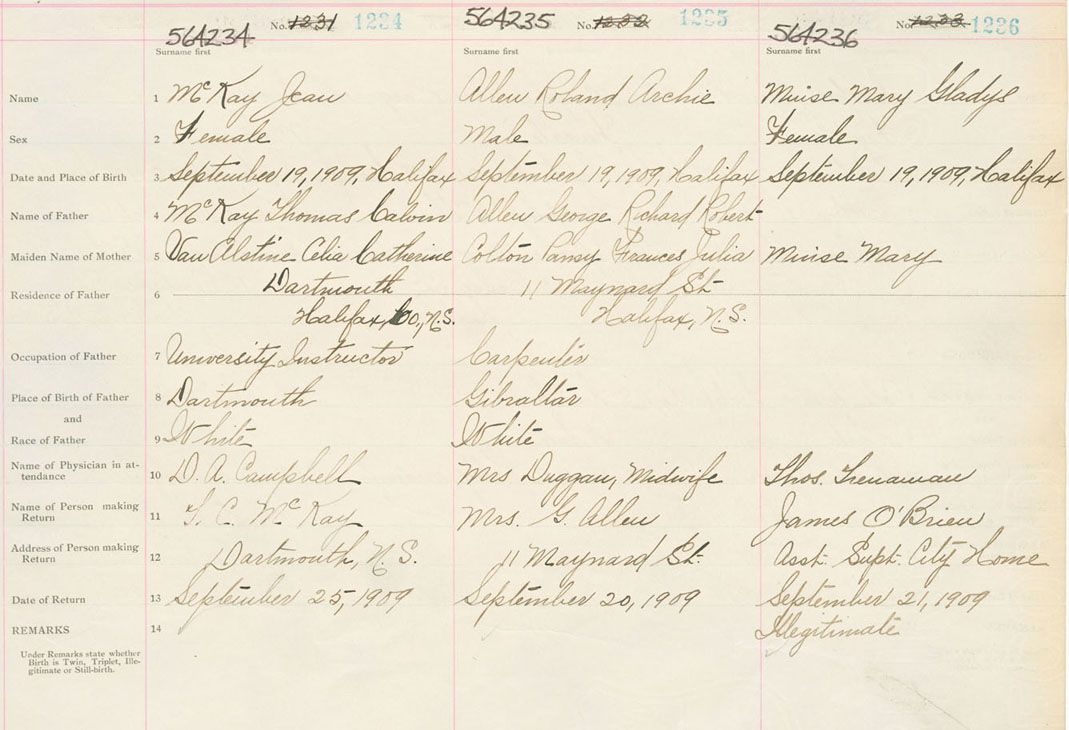 564234 No. 1231 1234 564235 No. 1232 1235 564236 No. 1233 1236
Surname first Surname first Surname first
Name 1 McKay Jean Allen Roland Archie Minse Mary Gladys
Sex 2 Female Male Female
Date and Place of Birth 3 September 19, 1909, Halifax September 19, 1909, Halifax September 19, 1909, Halifax
Name of Father 4 McKay Thomas Calvin Allen George Richard Robert
Maiden Name of Mother 5 Van Alstine Celia Catherine Colton Pansy Frances Julia Minse Mary
Residence of Father 6 Dartmouth 11 Maynard St
Halifax, Co., N.S. Halifax, N.S.
Occupation of Father 7 University Instructor Carpenter
Place of Birth of Father 8 Dartmouth Gibraltar
and
Race of Father 9 White White
Name of Physician in at- 10 D. A. Campbell Mrs Duggan, Midwife Thos. Trenaman
tendance
Name of Person making 11 T. C. McKay Mrs. G. Allen James O'Brien
Return
Address of Person making 12 Dartmouth, N.S. 11 Maynard St. Asst. Supt. City Home
Return
Date of Return 13 September 25, 1909 September 20, 1909 September 21, 1909
REMARKS 14 Illegitimate
Under Remarks state whether
Birth is Twin, Triplet, Ille-
gitimate or Still-birth.